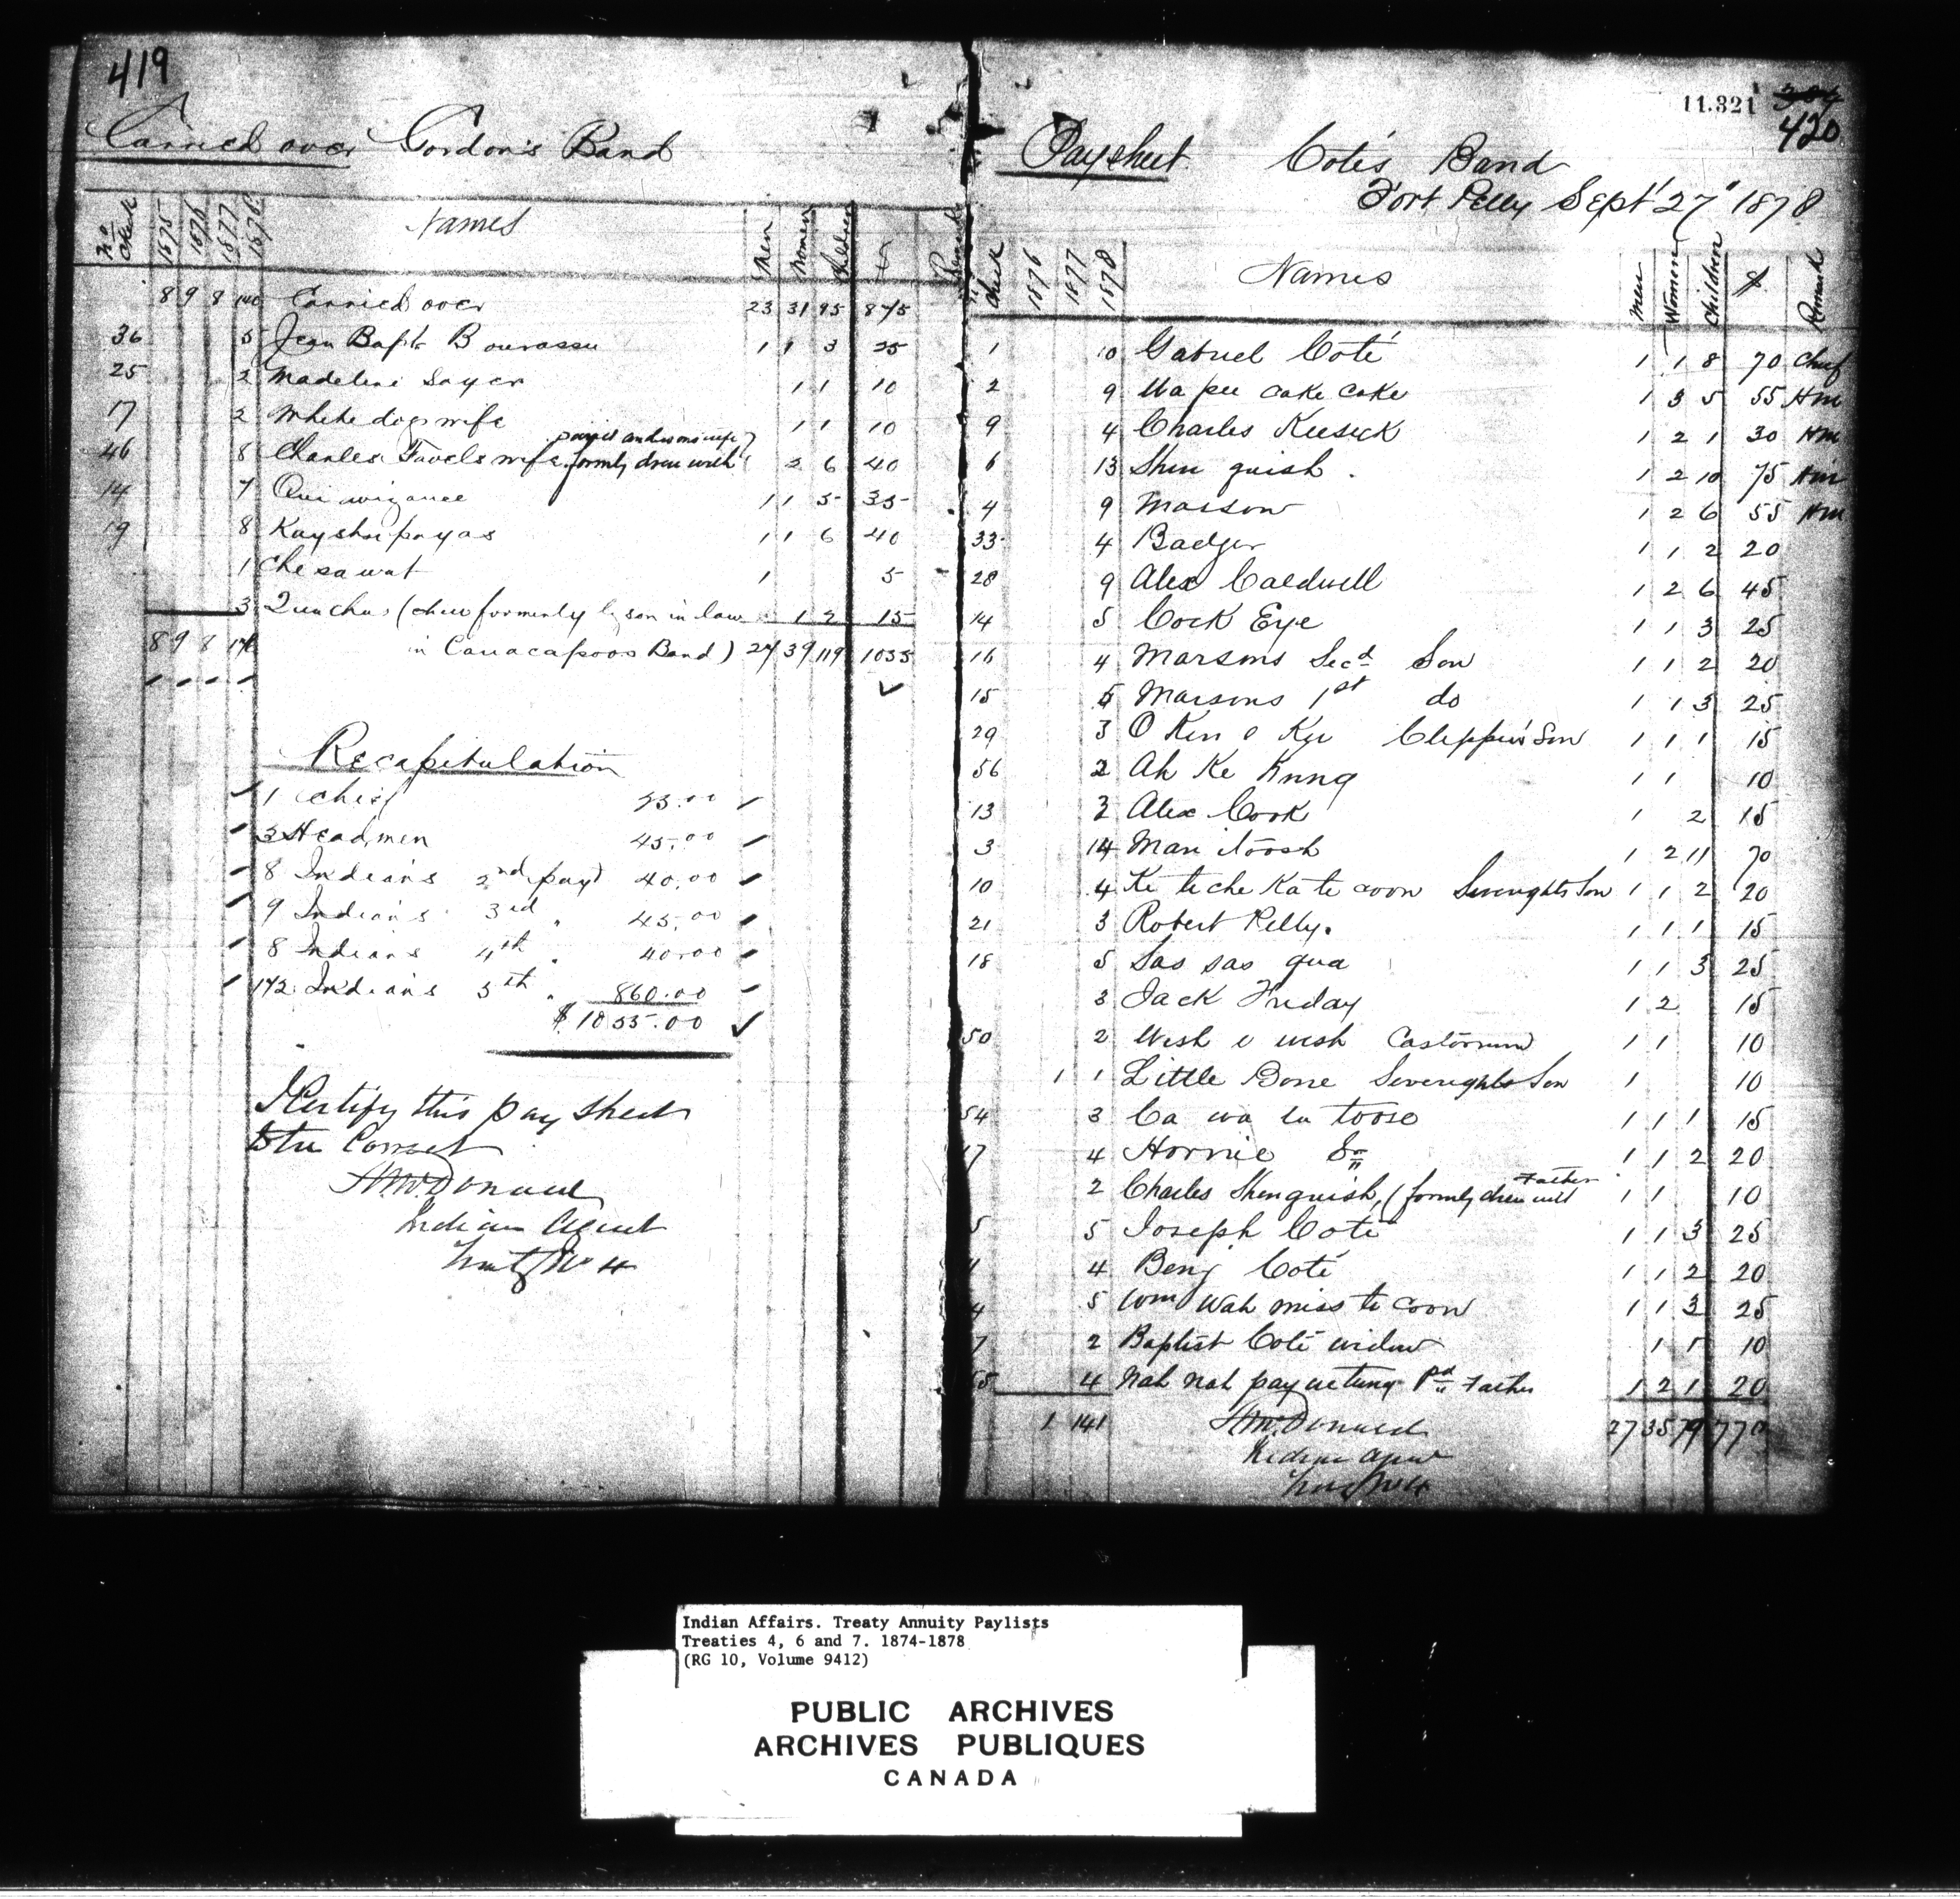 419
Carried over Gordon's Band
No Check 1875 1876 1877 1878 Names Men Women Children $ Remarks
8 9 8 140 Carried over 23 31 95 875
36 5 Jean Bapte Bourassu 1 1 3 25
25 2 Madeline Sayer 1 1 10
17 2 White dogs wife 1 1 10
46 8 Charles Favels wife formly drew with 2 6 40
14 7 Qui wizance 1 1 5 35
19 8 Kayshepayas 1 1 6 40
1 Chesawat 1 5
3 (drew formerly by son in law 1 2 15
8 9 8 176 in Cauacapoos Band) 27 39 119 1035
Recapitulation
1 Chief 25.00
3 Headmen 45.00
8 Indians 2nd payt 40.00
9 Indians 3rd " 45.00
8 Indians 4th " 40.00
172 Indians 5th " 860.00
$ 1055.00
I Certify this pay sheet
to be Correct
A McDonald
Indian Agent
Treaty No 4
11.321 420
Paysheet Cote's Band
Fort Pelly Sept 27" 1878
No Check 1876 1877 1878 Names Men Women Children $ Remark
1 10 Gabriel Coté 1 1 8 70 Chief
2 9 Wa pee cake cake 1 3 5 55 Hm
9 4 Charles Keesick 1 2 1 30 Hm
6 13 Shen guish 1 2 10 75 Hm
4 9 Masson 1 2 6 55 Hm
33 4 Badger 1 1 2 20
28 9 Alex Caldwell 1 2 6 45
14 5 Cock Eye 1 1 3 25
16 4 Marsons Secd Son 1 1 2 20
15 5 Marsons 1st do 1 1 3 25
29 3 O Ken e Kee Son 1 1 1 15
56 2 Ah Ke Knng 1 1 10
13 3 Alex Cook 1 2 15
3 14 Man itoosh 1 2 11 70
10 4 Ke teche Ka te coon Severights Son 1 1 2 20
21 3 Robert Pelly. 1 1 1 15
18 5 Sas sas qua 1 1 3 25
3 Jack Friday 1 2 15
50 2 Wesh e wesh 1 1 10
1 1 Little Bone Severights Son 1 10
54 3 Ca wa en toose 1 1 1 15
17 4 Hornie Sr 1 1 2 20
2 Charles Shenguish, (formly drew with Father 1 1 10
5 5 Joseph Coté 1 1 3 25
4 Benj Coté 1 1 2 20
4 5 Wm Wah miss te coon 1 1 3 25
7 2 Baptist Coté widow 1 1 10
55 4 Nah nah pay ue tung Pd Father 1 2 1 20
1 141 27 35 79 770
A McDonald
Indian Agent
Treaty No 4
Indian Affairs. Treaty Annuity Paylists
Treaties 4, 6 and 7. 1874-1878
(RG 10, Volume 9412)
PUBLIC ARCHIVES
ARCHIVES PUBLIQUES
CANADA